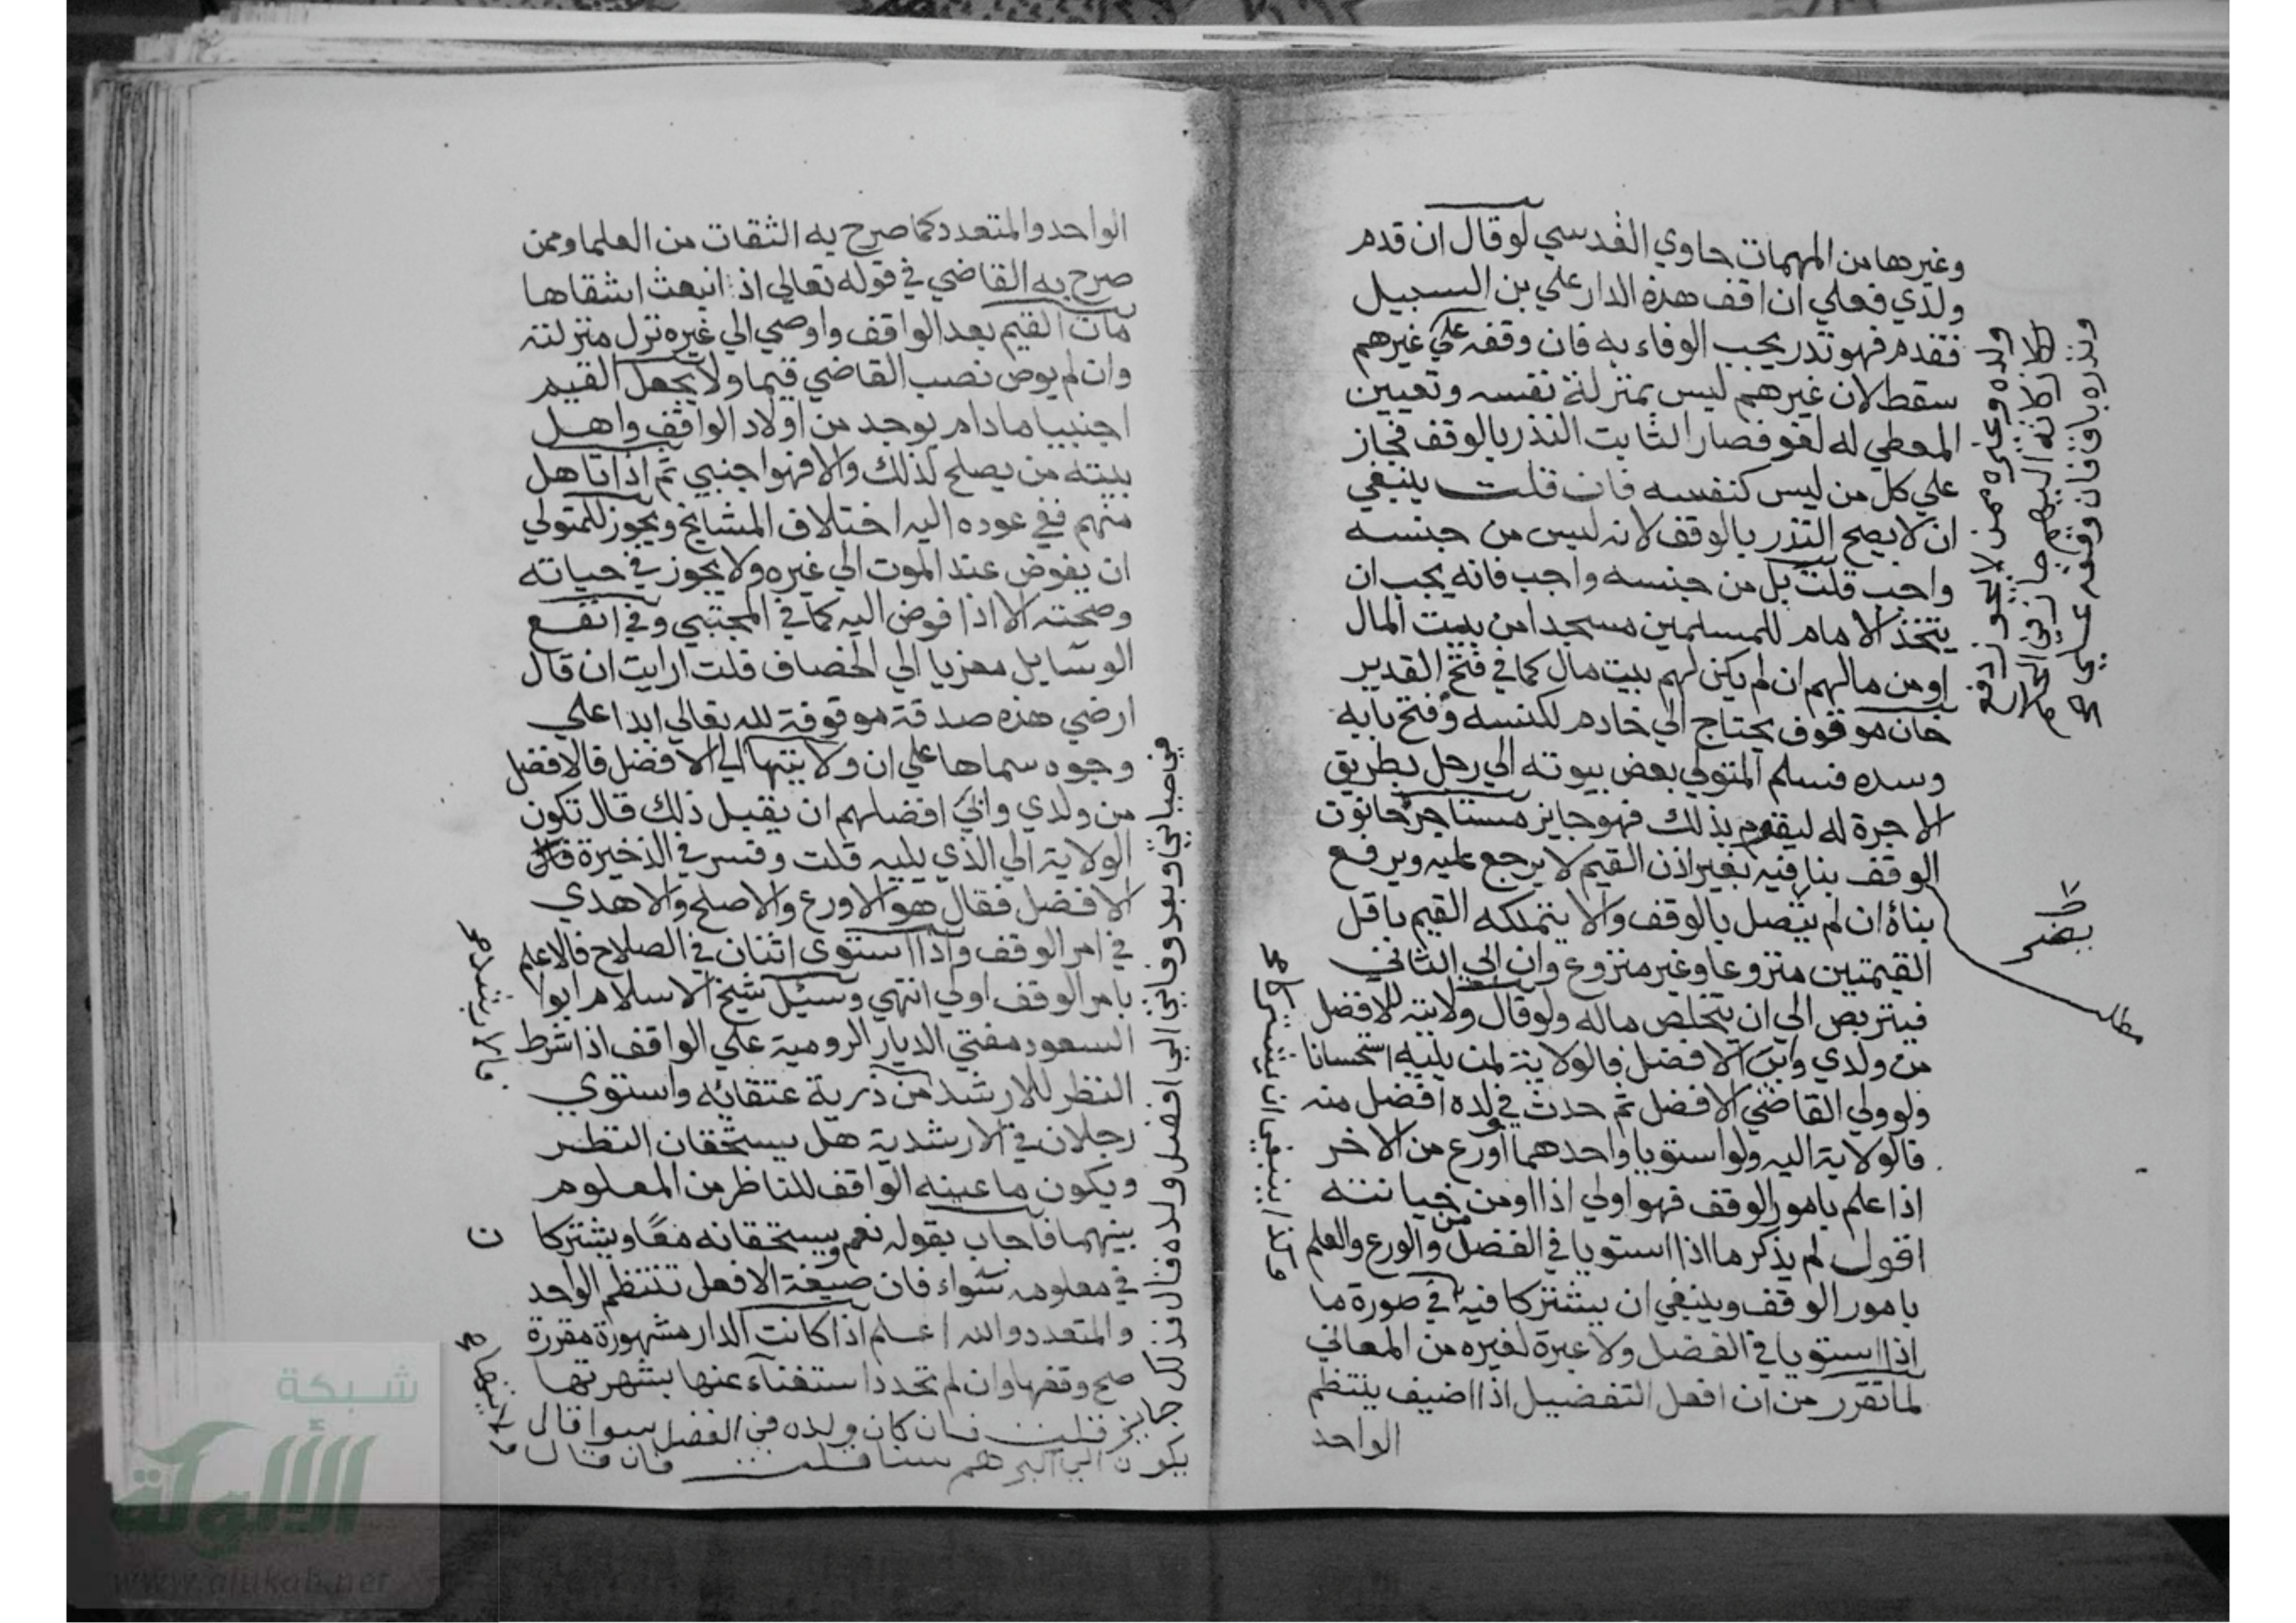 وغيرها من المهمات حاوي القدسي لو قال ان قدم
ولدي فعلي ان اقف هذه الدار علي بن السبيل
فقدم فهو نذر يجب الوفاء به فان وقفه علي غيرهم
سقط لان غيرهم ليس بمنزلة نفسه وتعيين
المعطي له لغو فصار الثابت النذر بالوقف فجاز
علي كل من ليس كنفسه فان قلت ينبغي
ان لا يصح النذر بالوقف لانه ليس من جنسه
واجب قلت بل من جنسه واجب فانه يجب ان
يتخذ الامام للمسلمين مسجدا من بيت المال
او من مالهم ان لم يكن لهم بيت مال كما في فتح القدير
خان موقوف يحتاج الي خادم لكنسه وفتح بابه
وسده فسلم المتولي بعض بيوته الي رجل بطريق
الاجرة له ليقوم بذلك فهو جايز مستاجر حانوت
الوقف بنا فيه بغير اذن القيم لا يرجع عليه ويرفع
بناه ان لم يتصل بالوقف والا يتملكه القيم باقل
القيمتين منزوعا وغير منزوع وان ابي الثاني
فيتربص الي ان يتخلص ماله ولو قال ولايته للافضل
من ولدي وابي الافضل فالولاية لمن يليه استحسانا
ولو ولي القاضي الافضل ثم حدث في ولده افضل منه
فالولاية اليه ولو استويا واحدهما اورع من الاخر
اذا علم بامور الوقف فهو اولي اذا اومن خيانته
اقول لم يذكر ما اذا استويا في الفضل والورع والعلم
بامور الوقف وينبغي ان يشتركا فيه في صورة ما
اذا استويا في الفضل ولا عبرة لغيره من المعاني
لما تقرر من ان افعل التفضيل اذا اضيف ينتظم
الواحد
ونذره باق فان وقفه علي
ولده وغيره ممن لا يجوز دفع
مطلب
الواحد والمتعدد كما صرح به الثقات من العلما وممن
صرح به القاضي في قوله تعالي اذ انبعث اشقاها
مات القيم بعد الواقف واوصي الي غيره نزل منزلته
وان لم يوص نصب القاضي قيما ولا يجعل القيم
اجنبيا ما دام يوجد من اولاد الواقف واهل
بيته من يصلح لذلك والا فهو اجنبي ثم اذا تاهل
منهم ففي عوده اليه اختلاف المشايخ ويجوز للمتولي
ان يفوض عند الموت الي غيره ولا يجوز في حياته
وصحته الا اذا فوض اليه كما في المجتبي وفي انفع
الوسايل معزيا الي الخصاف قلت ارايت ان قال
ارضي هذه صدقة موقوفة لله تعالي ابدا علي
وجوه سماها علي ان ولايتها الي الافضل فالافضل
من ولدي وابي افضلهم ان يقبل ذلك قال تكون
الولاية الي الذي يليه قلت وفسر في الذخيرة قال
الافضل فقال هو الاورع والاصلح والاهدي
في امر الوقف واذا استوي اثنان في الصلاح فالاعلم
بامر الوقف اولي انتهي وسئيل شيخ الاسلام ابوا
السعود مفتي الديار الرومية علي الواقف اذا شرط
النظر للارشد من ذرية عتقائه واستوي
رجلان في الارشدية هل يستحقان النظر
ويكون ما عينه الواقف للناظر من المعلوم
بينهما فاجاب بقوله نعم ويستحقانه معا ويشتركا
ن
في معلومه سواء فان صيغة الافعل تنتظم الواحد
والمتعدد والله اعلم اذا كانت الدار مشهورة مقررة
صح وقفها وان لم تحدد استغناء عنها بشهرتها
في حياتي وبعد وفاتي الي افضل ولده قال فذلك جايز قلت فان كان ولده في الفضل سوا قال
يكون الي اكبرهم سنا قلت فان قال
فالارشد صح